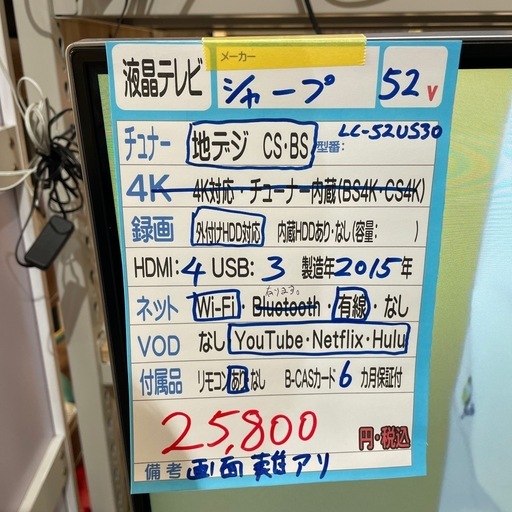 メーカー
液晶テレビ シャープ 52V
チューナー 地デジ CS・BS 型番: LC-52US30
4K 4K対応・チューナー内蔵(BS4K・CS4K)
録画 外付けHDD対応 内蔵HDDあり・なし(容量: )
HDMI:4 USB:3 製造年2015年
ネット Wi-Fi・Bluetooth・有線・なし
VOD なし YouTube・Netflix・Hulu
付属品 リモコンあり・なし B-CASカード 6カ月保証付
25,800 円・税込
備考 画面難アリ